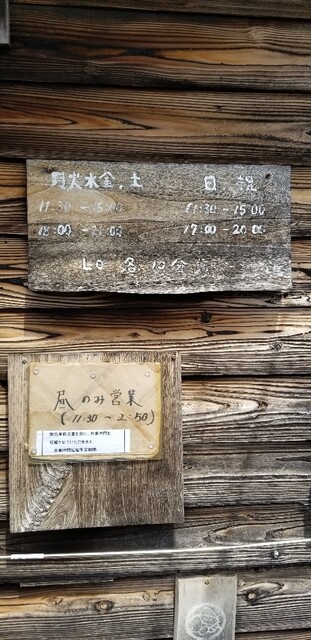 月火木金、土　日、祝
11:30 -15:00　11:30 -15:00
18:00 -21:00　17:00 -20:00
LO 各30分
昼のみ営業
(11:30 ~ 2:50)